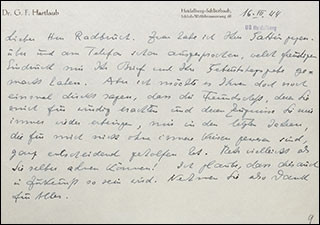 Dr. G. F. Hartlaub
Heidelberg-Schlierbach,
16.III.49
Lieber Herr Radbruch. Zwar habe ich Ihrer Gattin gegen-
über und am Telefon schon ausgesprochen, welch freudigen
Eindruck mir Ihr Brief und Ihre Geburtstagsgabe ge-
macht haben. Aber ich möchte es Ihnen doch noch
einmal direkt sagen, dass die Freundschaft, deren Sie
mich für würdig erachten und deren Zeugnisse Sie mir
immer wieder erbringen, mir in den letzten Jahren,
die für mich nicht ohne innere Krisen gewesen sind,
ganz entscheidend geholfen hat. Mehr vielleicht als
Sie selbst ahnen können! Ich glaube, dass dies auch
in Zukunft so sein wird. Nehmen Sie also Dank
für Alles.
9